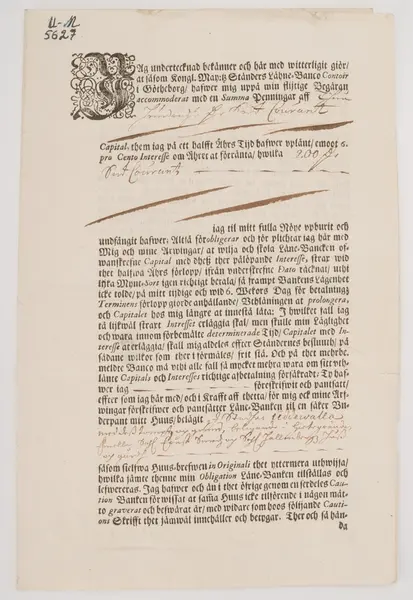 U-M
5627
JAg undertecknad bekänner och här med witterligit giör/
at såsom Kongl. May:tz Ständers Låhne-Banco Contoir
i Götheborg/ hafwer mig uppå min flijtige Begäran
accommoderat med en Summa Penningar aff
Courant
Capital, them iag på ett halfft Åhrs Tijd hafwer uplånt/ emoot 6.
pro Cento Interesse om Åhret at förränta/ hwilka 200
Courant
iag til mitt fulla Nöye upburit och
undfångit hafwer: Altså förobligerar och för plichtar iag här med
Mig och mine Arwingar/ at wilja och skola Låne-Bancken of-
wanskrefne Capital med thetz ther pålöpande Interesse, strax wid
thet halfwa Åhrs förlopp/ ifrån underskrefne Dato räcknat/ uthi
lijka Mynt-Sort igen richtigt betala/ så frampt Banckens Lägenhet
icke tolde/ på mitt tijdige och wid 6. Wekors Dag för betalnings
Terminens förlopp giorde anhållande/ Uthlåningen at prolongera,
och Capitalet hos mig längre at innestå låta: J hwilket fall iag
tå lijkwäl strax Interesset erläggia skal/ men skulle min Läglighet
och wara innom förbemälte determinerade Tijd/ Capitalet med In-
teresse at erläggia/ skall mig aldeles effter Ständernes beslut/ på
sådane wilkor som ther i förmäles/ fritt stå. Och på thet mehrbe-
melte Banco må uthi alle fall så mycket mehra wara om sitt uth-
länte Capitals och Interesses richtige afbetalning försäkrat: Ty haf-
wer iag förskrifwit och pantsatt/
effter som iag här med/ och i Krafft aff thetta/ för mig och mine Ar-
wingar förskrifwer och pantsätter Låne-Bancken til en säker Un-
derpant mitt Huus/ belägit
såsom sielfwa Huus-brefwen in Originali thet ytermera uthwijsa/
hwilka jämte thenne min Obligation Låne-Bancken tilställas och
lefwereras. Jag hafwer och än i thet öfrige genom en serdeles Cau-
tion Bancken förwissat at samma Huus icke tilförende i någon måt-
to graverat och beswärat är/ med widare som hoos följande Cauti-
ons Skrifft thet jämwäl innehåller och betygar. Ther och så hän-
da